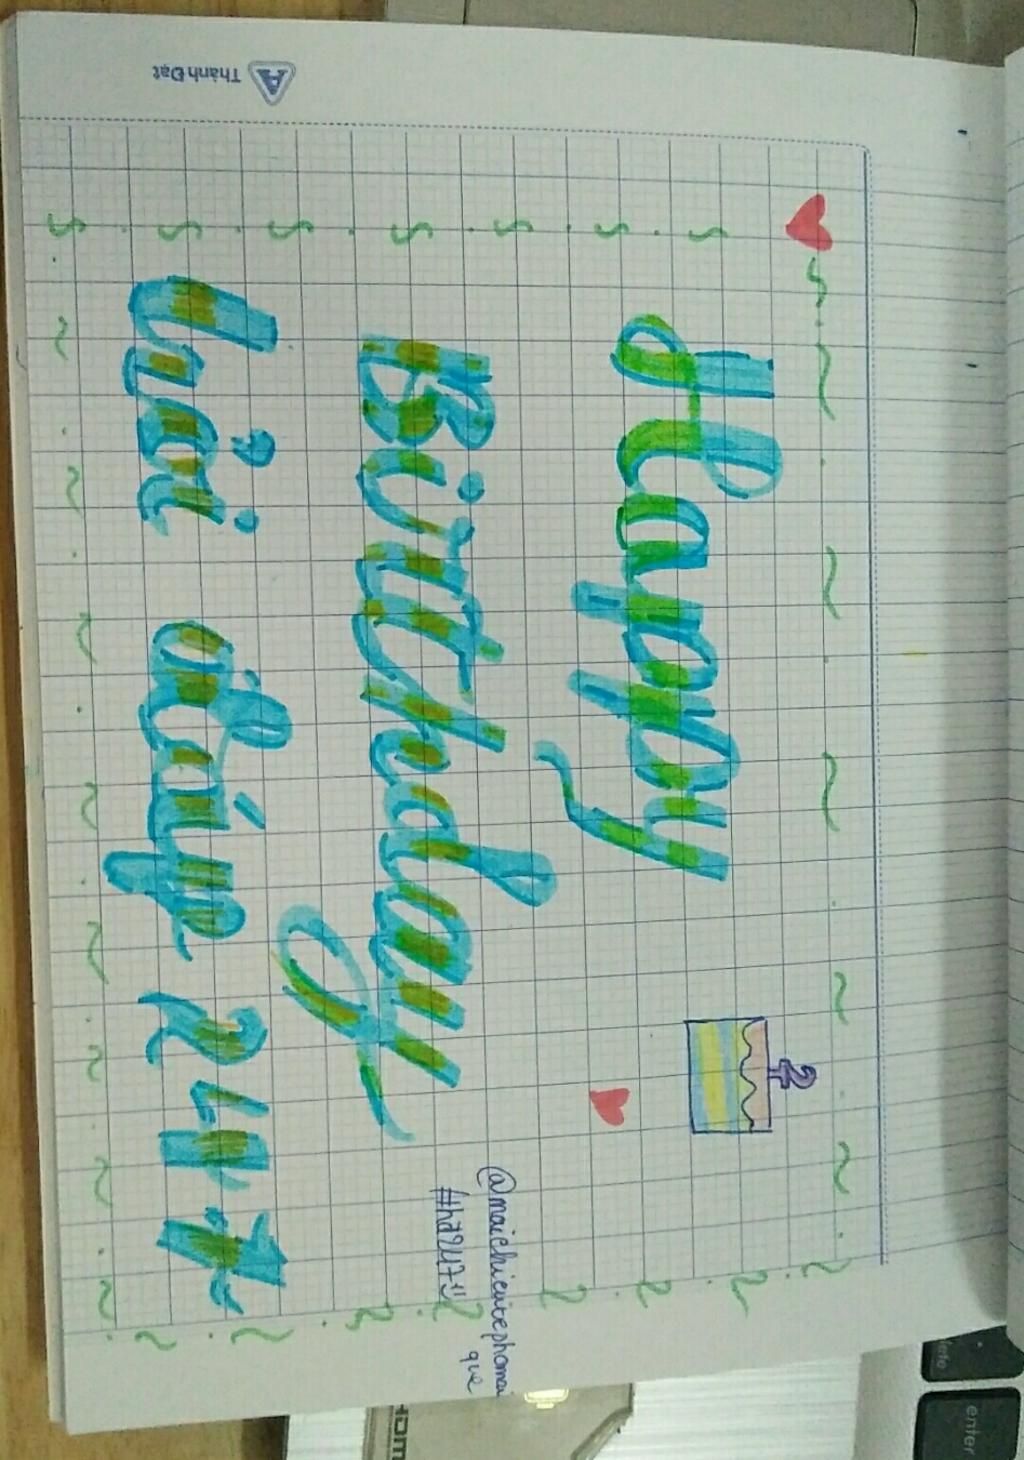 Happy
Birthday
hỏi đáp 247
2
@maichicutephomai
que
#hd247:)
Thành Đạt
enter